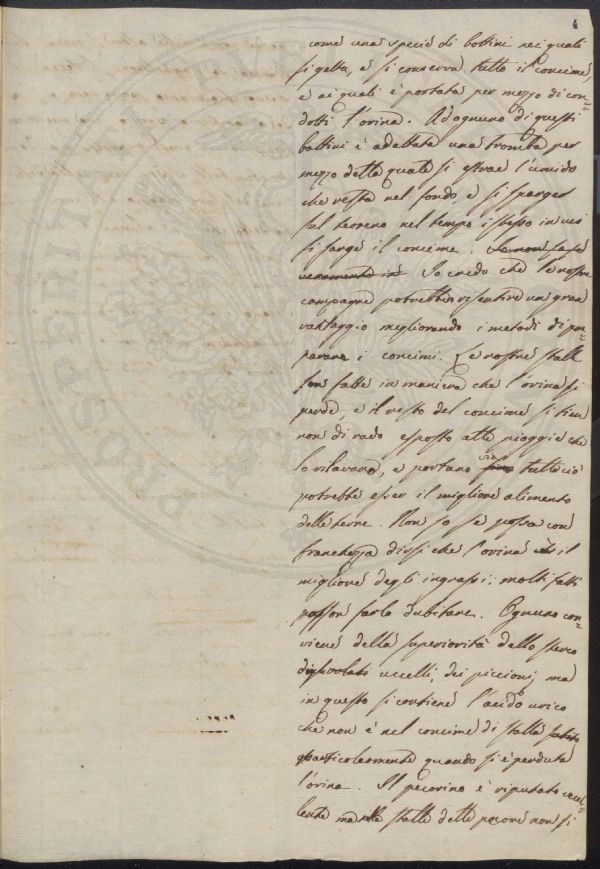 4
come una specie di bottini nei quali
si getta, e si conserva tutto il concime,
e ai quali è portata per mezzo di con-
dotti l'orina. Ad ognuno di questi
bottini è adattata una tromba per
mezzo della quale si estrae l'umido
che resta nel fondo, e si sparge
sul terreno nel tempo istesso in cui
si sarge il concime. Se non fosse
veramente in Io credo che le nostre
campagne potrebbero risentire un gran
vantaggio migliorando i metodi di pre-
parare i concimi. Le nostre stalle
son fatte in maniera che l'orina si
perde, e il resto del concime si tien
non di rado esposto alle pioggie che
lo rilavano, e portano via tutto ciò
potrebbe esser il migliore alimento
delle terre. Non so se possa con
franchezza dirsi che l'orina è il
migliore degli ingrassi; molti fatti
posson farlo dubitare. Ognuno con-
viene della superiorità dello sterco
degli uccelli, dei piccioni; ma
in questo si contiene l'acido urico
che non è nel concime di stalla
particolarmente quando si è perduta
l'orina. Il pecorino è riputato eccel-
lente ma nelle stalle delle pecore non si